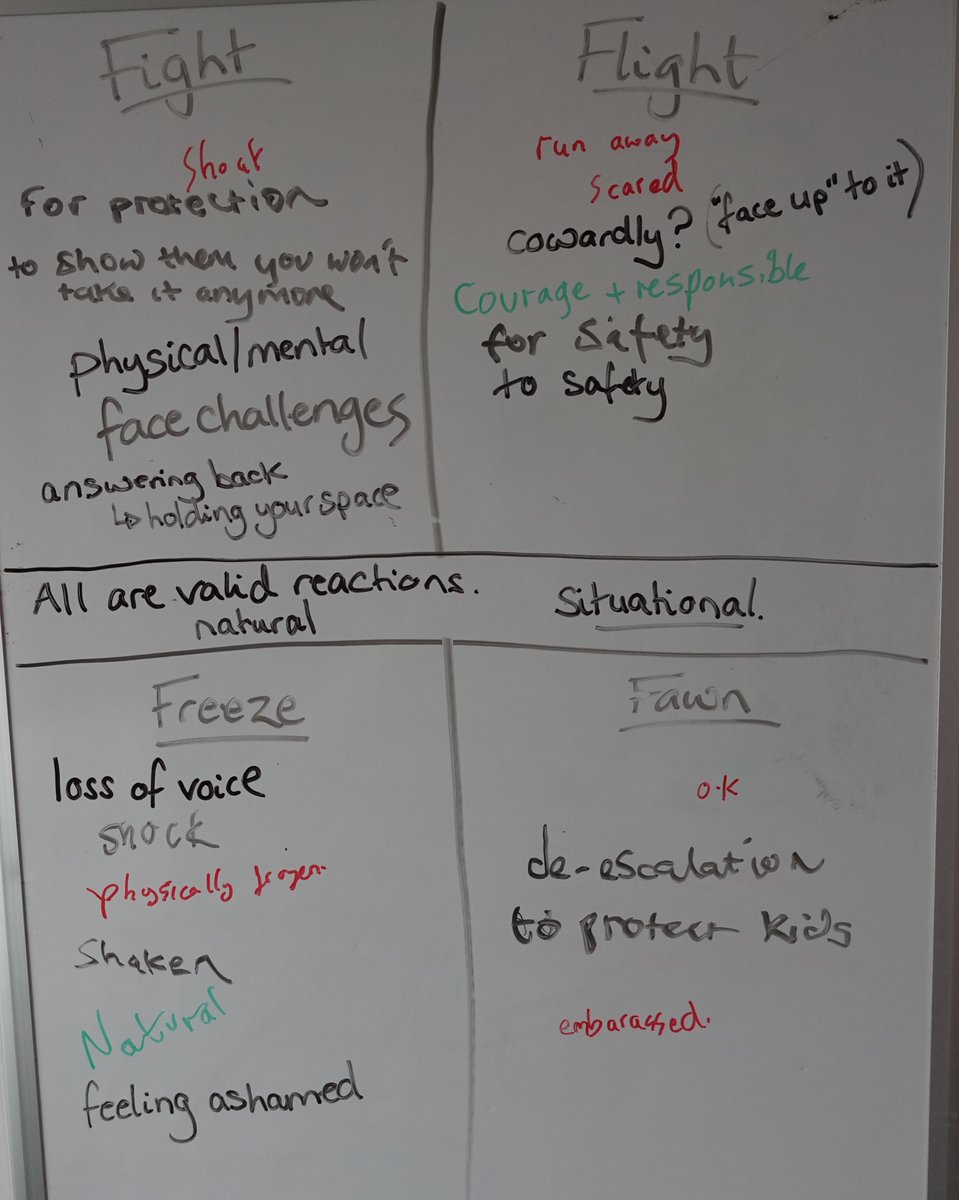 Fight
Shout
for protection
to show them you won't
take it anymore
physical/mental
face challenges
answering back
↳ holding your space
Flight
run away
scared
cowardly? ("face up" to it)
Courage + responsible
for safety
to safety
All are valid reactions.
natural
Situational.
Freeze
loss of voice
shock
physically frozen.
Shaken
Natural
feeling ashamed
Fawn
o.k
de-escalation
to protect kids
embarassed.